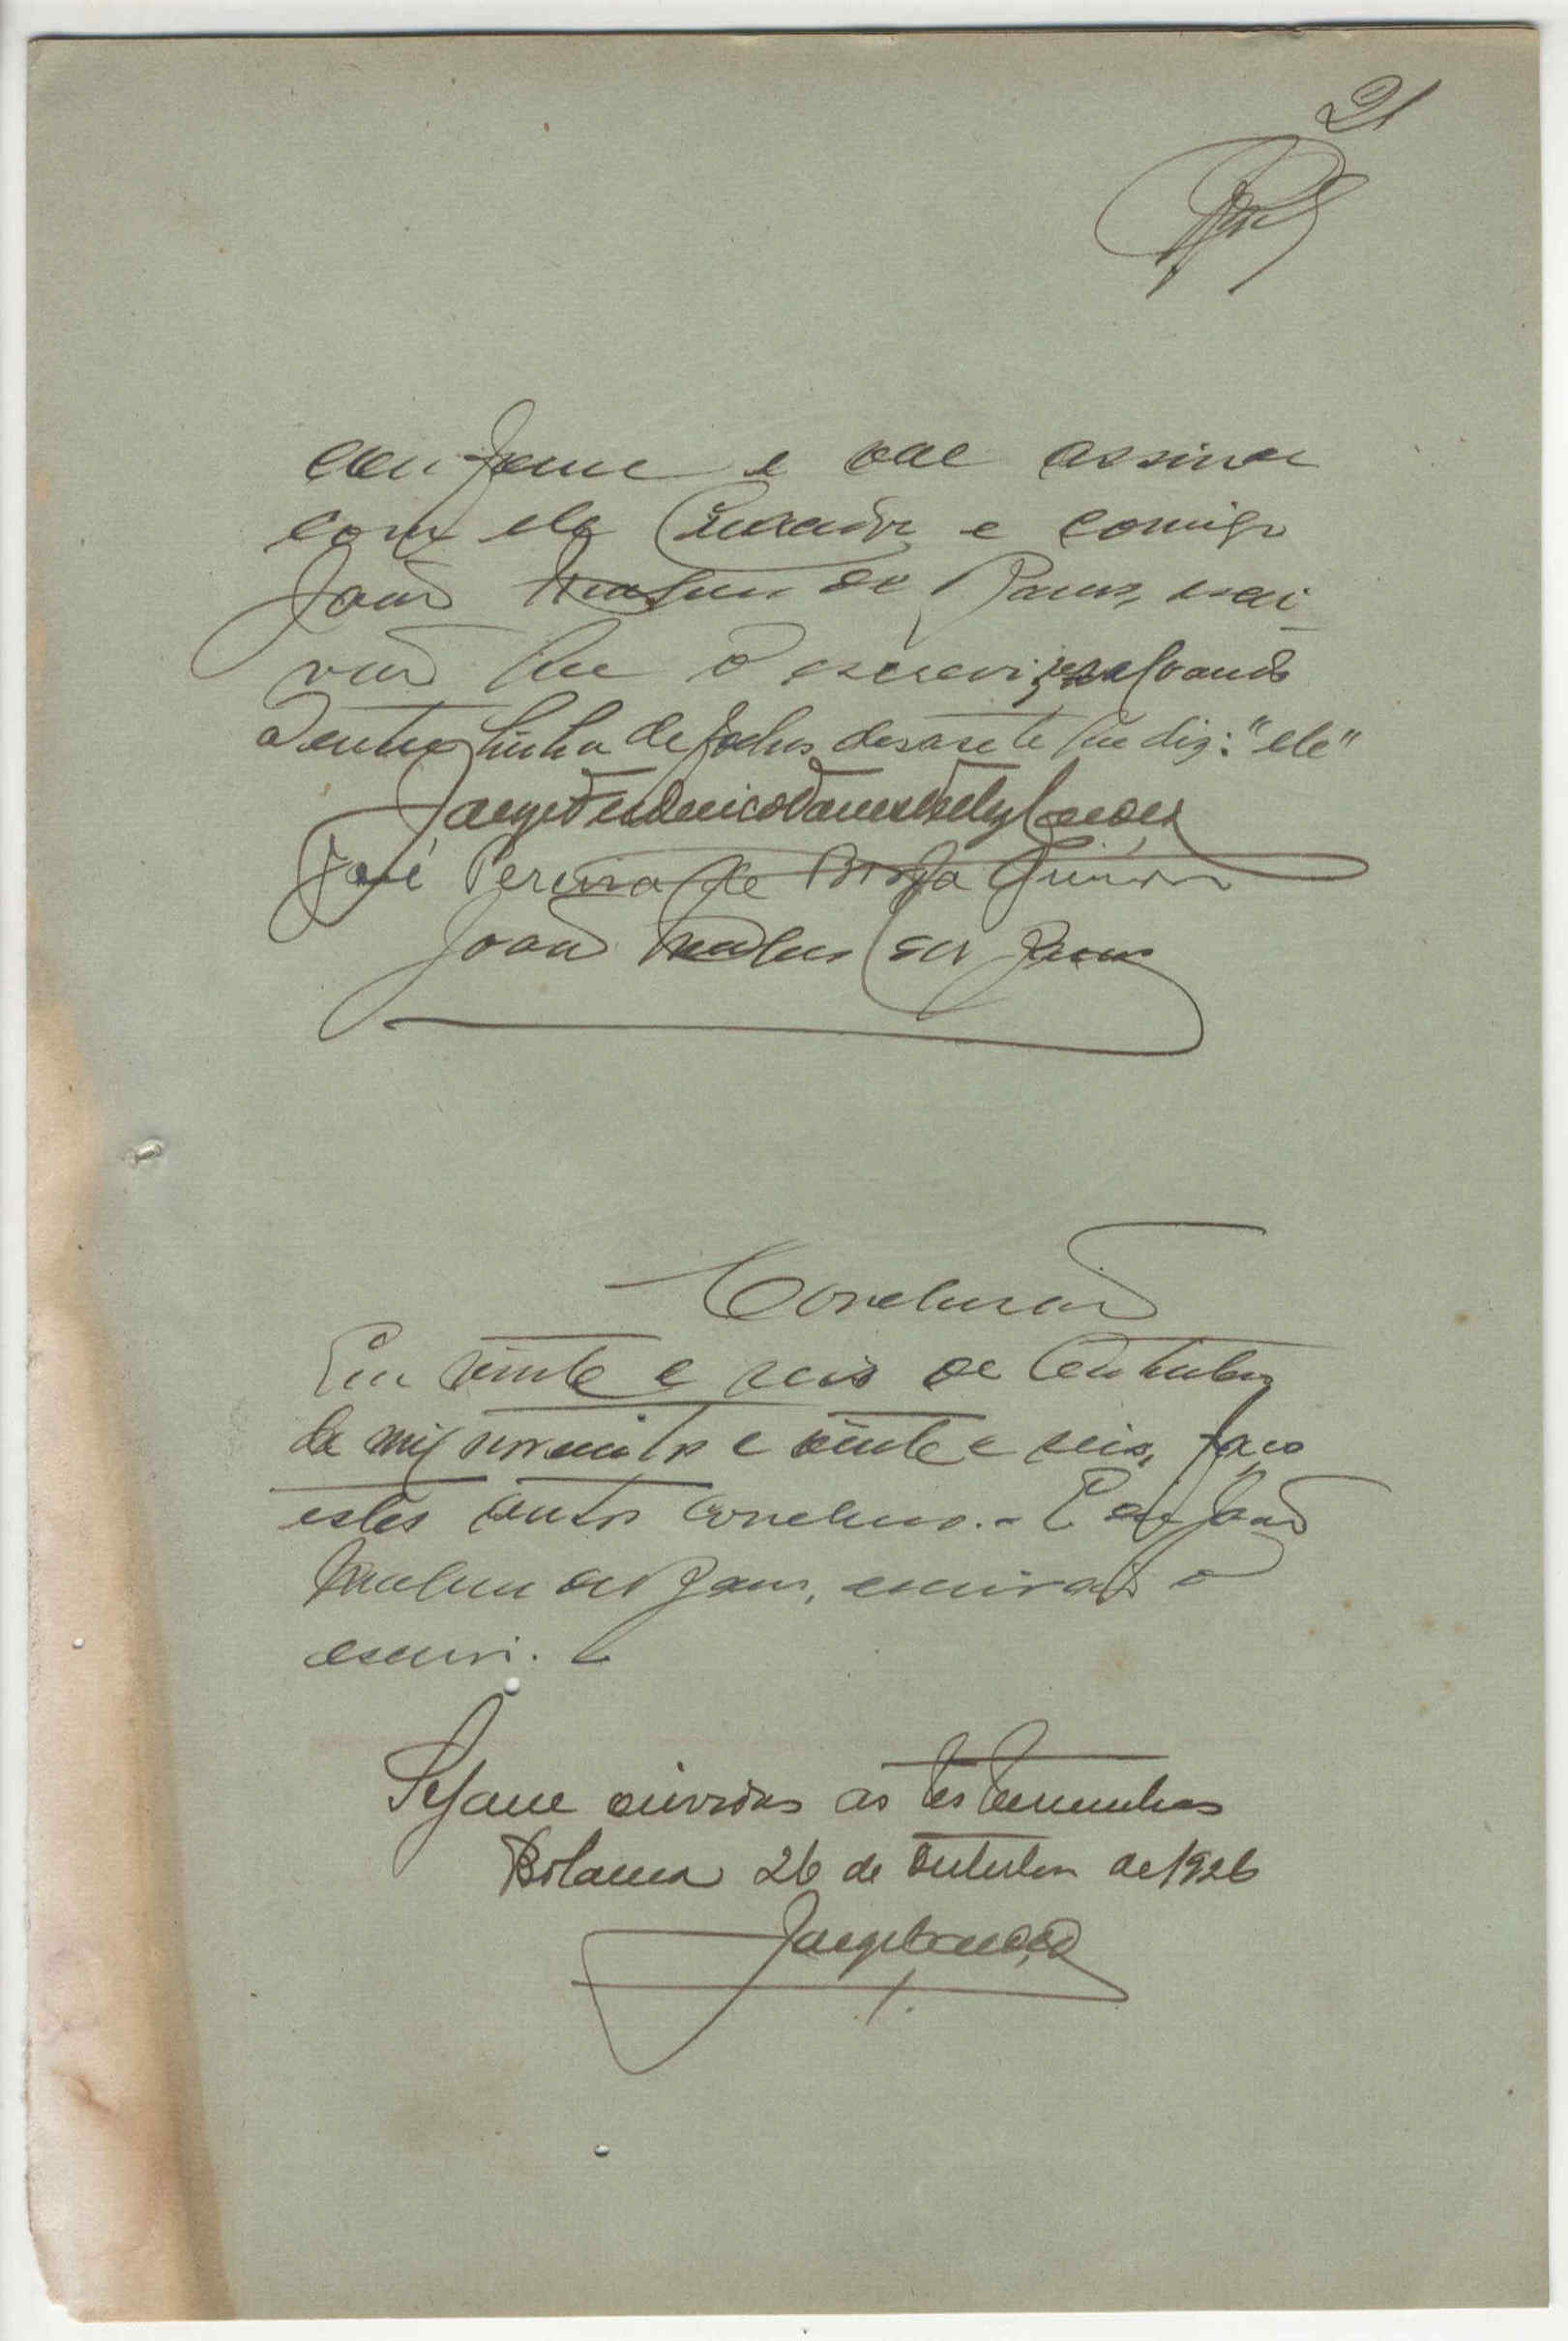 21
conforme e vae assinar
com ele Curador e comigo
João de escri-
vão que o escrevi, resalvando
a entre linha de folhas desasete que diz: "ele"
Jorge Frederico
José Pereira de Borja Junior
João
Conclusão
Em vinte e seis de Outubro
de mil novecentos e vinte e seis, faço
estes autos conclusos. - E eu João
escrivão o
escrevi.
Sejam ouvidas as testemunhas
Bolama 26 de Outubro de 1926